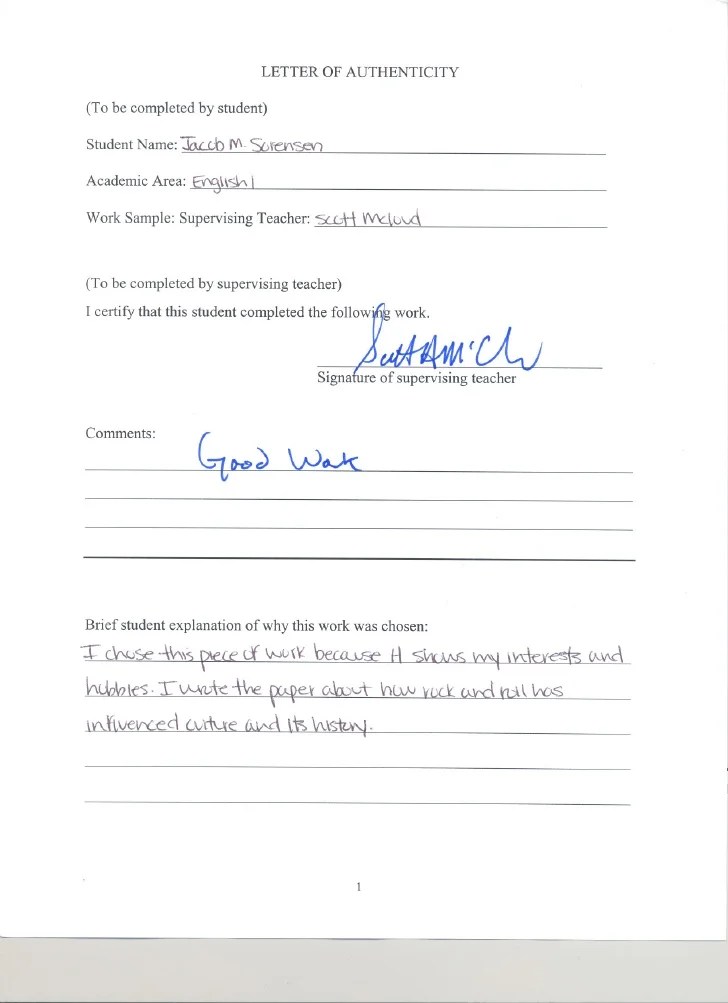 LETTER OF AUTHENTICITY
(To be completed by student)
Student Name: Jacob M. Sorensen
Academic Area: English 1
Work Sample: Supervising Teacher: Scott Mcloud
(To be completed by supervising teacher)
I certify that this student completed the following work.
Signature of supervising teacher
Comments:
Good Work
Brief student explanation of why this work was chosen:
I chose this piece of work because it shows my interests and
hobbies. I wrote the paper about how rock and roll has
influenced culture and its history.
1